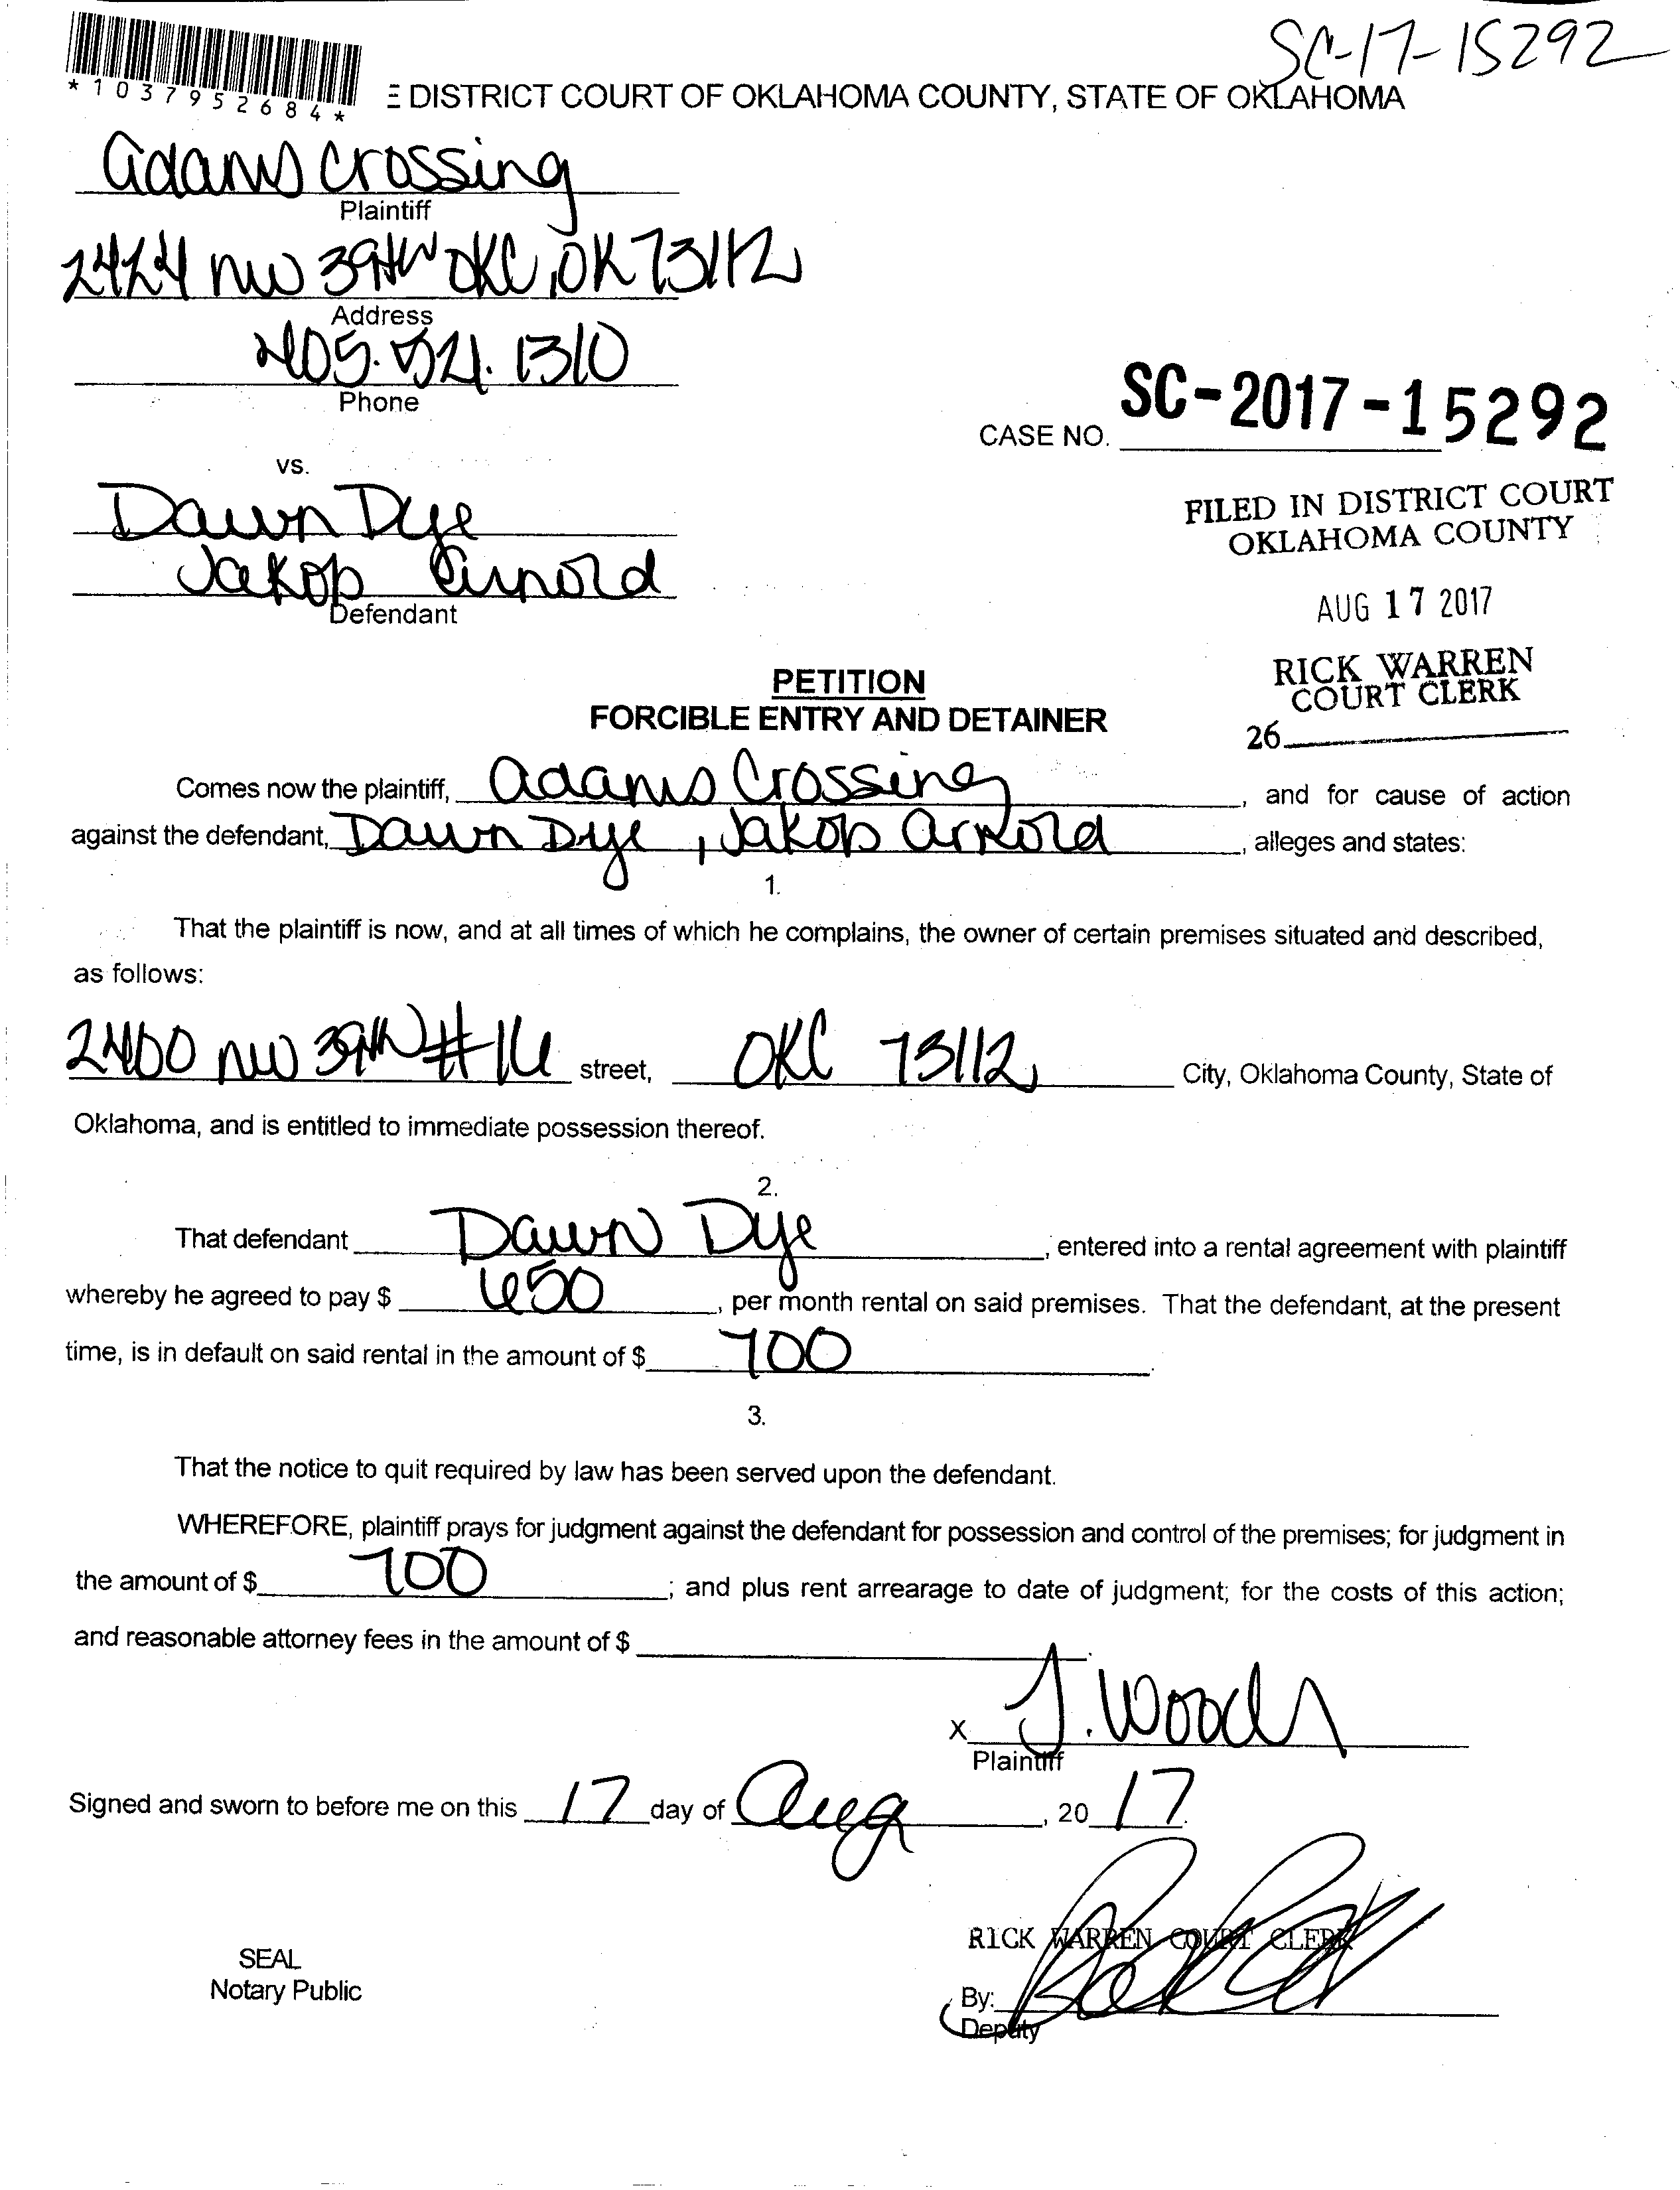 SC-17-15292
*1037952684*
E DISTRICT COURT OF OKLAHOMA COUNTY, STATE OF OKLAHOMA
adams crossing
Plaintiff
2424 nw 39th OKC, OK 73112
Address
405. 521. 1310
Phone
CASE NO. SC-2017-15292
vs.
Dawn Dye
Jakob Arnold
Defendant
FILED IN DISTRICT COURT
OKLAHOMA COUNTY
AUG 17 2017
RICK WARREN
COURT CLERK
26
PETITION
FORCIBLE ENTRY AND DETAINER
Comes now the plaintiff, adams Crossing, and for cause of action
against the defendant, Dawn Dye, Jakob arnold, alleges and states:
1.
That the plaintiff is now, and at all times of which he complains, the owner of certain premises situated and described,
as follows:
2400 nw 39th #16 street, OKC 73112 City, Oklahoma County, State of
Oklahoma, and is entitled to immediate possession thereof.
2.
That defendant Dawn Dye, entered into a rental agreement with plaintiff
whereby he agreed to pay $ 650, per month rental on said premises. That the defendant, at the present
time, is in default on said rental in the amount of $ 700.
3.
That the notice to quit required by law has been served upon the defendant.
WHEREFORE, plaintiff prays for judgment against the defendant for possession and control of the premises; for judgment in
the amount of $ 700; and plus rent arrearage to date of judgment; for the costs of this action;
and reasonable attorney fees in the amount of $
X J. Woods
Plaintiff
Signed and sworn to before me on this 17 day of Aug, 20 17.
RICK WARREN COURT CLERK
SEAL
Notary Public
By:
Deputy